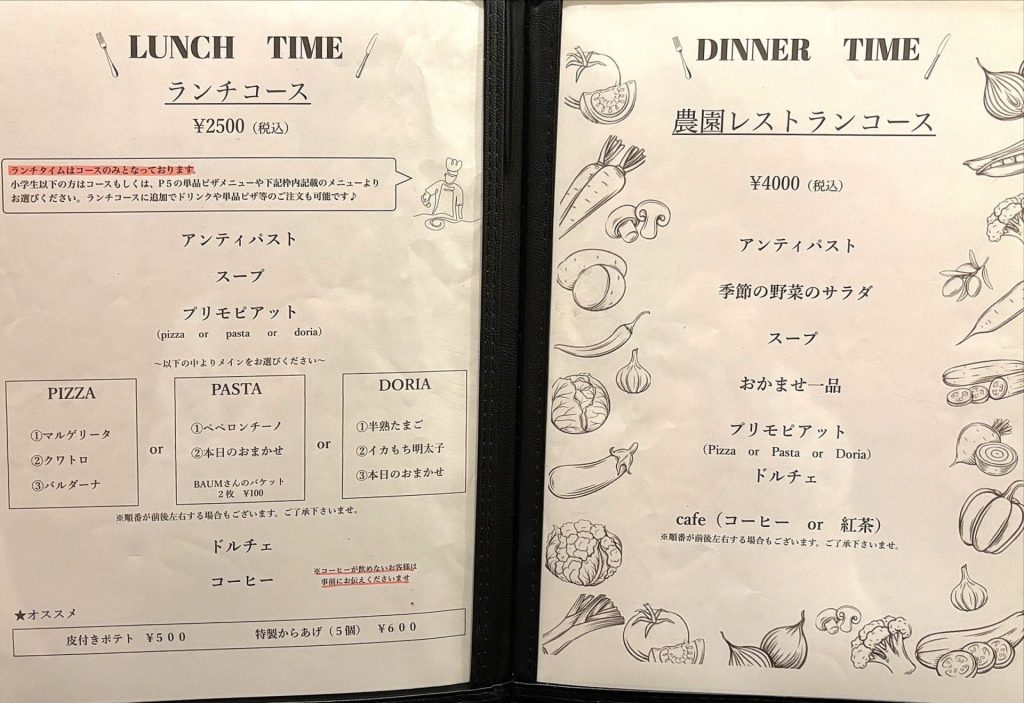 LUNCH TIME
ランチコース
¥2500（税込）
ランチタイムはコースのみとなっております。
小学生以下の方はコースもしくは、P5の単品ピザメニューや下記枠内記載のメニューより
お選びください。ランチコースに追加でドリンクや単品ピザ等のご注文も可能です♪
アンティパスト
スープ
プリモピアット
(pizza or pasta or doria)
～以下の中よりメインをお選びください～
PIZZA
①マルゲリータ
②クワトロ
③バルダーナ
or
PASTA
①ペペロンチーノ
②本日のおまかせ
BAUMさんのバケット
2枚 ¥100
or
DORIA
①半熟たまご
②イカもち明太子
③本日のおまかせ
※順番が前後左右する場合もございます。ご了承下さいませ。
ドルチェ
コーヒー
※コーヒーが飲めないお客様は
事前にお伝えくださいませ
★オススメ
皮付きポテト ¥500 特製からあげ（5個） ¥600
DINNER TIME
農園レストランコース
¥4000（税込）
アンティパスト
季節の野菜のサラダ
スープ
おかませ一品
プリモピアット
(Pizza or Pasta or Doria)
ドルチェ
cafe（コーヒー or 紅茶）
※順番が前後左右する場合もございます。ご了承下さいませ。